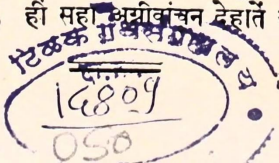 हीं सहा अग्रीवांचन देहातें
टिळक ग्रंथसंग्रहालय
दा.
16809
050